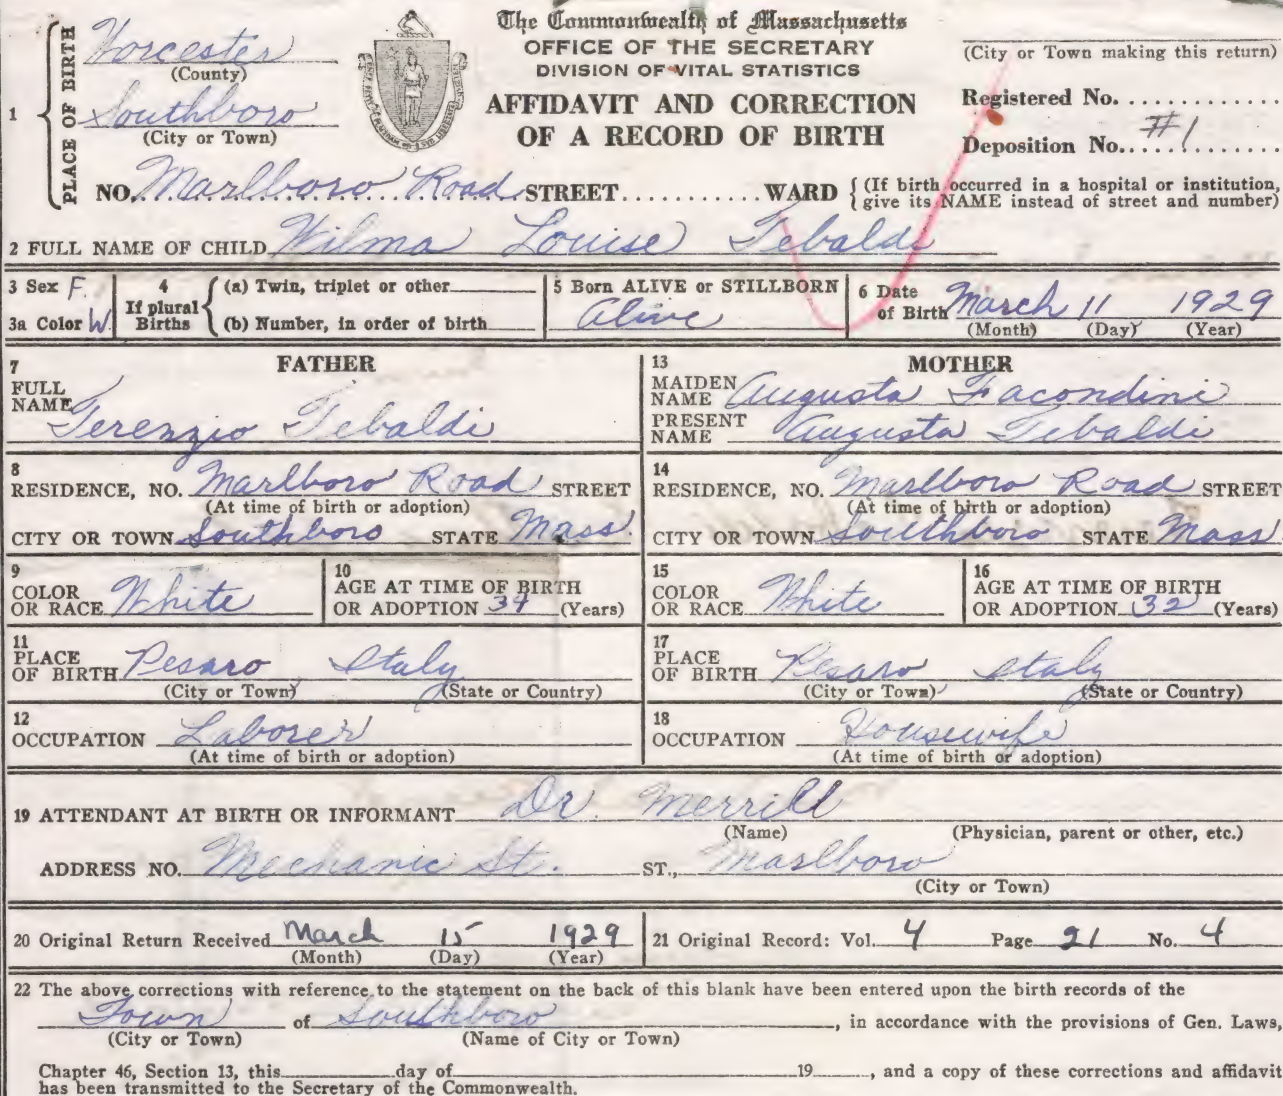 The Commonwealth of Massachusetts
OFFICE OF THE SECRETARY
DIVISION OF VITAL STATISTICS
AFFIDAVIT AND CORRECTION
OF A RECORD OF BIRTH
(City or Town making this return)
Registered No.
Deposition No. #1
1 PLACE OF BIRTH
Worcester
(County)
Southboro
(City or Town)
NO. Marlboro Road STREET WARD { (If birth occurred in a hospital or institution,
give its NAME instead of street and number)
2 FULL NAME OF CHILD Wilma Louise Tebaldi
3 Sex F.
3a Color W
4 If plural Births
(a) Twin, triplet or other
(b) Number, in order of birth
5 Born ALIVE or STILLBORN
Alive
6 Date of Birth March 11 1929
(Month) (Day) (Year)
FATHER
7 FULL NAME
Terenzio Tebaldi
8
RESIDENCE, NO. Marlboro Road STREET
(At time of birth or adoption)
CITY OR TOWN Southboro STATE Mass.
9
COLOR
OR RACE White
10
AGE AT TIME OF BIRTH
OR ADOPTION 34 (Years)
11
PLACE
OF BIRTH Pesaro Italy
(City or Town) (State or Country)
12
OCCUPATION Laborer
(At time of birth or adoption)
MOTHER
13
MAIDEN
NAME Augusta Facondini
PRESENT
NAME Augusta Tebaldi
14
RESIDENCE, NO. Marlboro Road STREET
(At time of birth or adoption)
CITY OR TOWN Southboro STATE Mass.
15
COLOR
OR RACE White
16
AGE AT TIME OF BIRTH
OR ADOPTION 32 (Years)
17
PLACE
OF BIRTH Pesaro Italy
(City or Town) (State or Country)
18
OCCUPATION Housewife
(At time of birth or adoption)
19 ATTENDANT AT BIRTH OR INFORMANT Dr. Merrill
(Name) (Physician, parent or other, etc.)
ADDRESS NO. Mechanic St. ST., Marlboro
(City or Town)
20 Original Return Received March 15 1929
(Month) (Day) (Year)
21 Original Record: Vol. 4 Page 21 No. 4
22 The above corrections with reference to the statement on the back of this blank have been entered upon the birth records of the
Town of Southboro, in accordance with the provisions of Gen. Laws,
(City or Town) (Name of City or Town)
Chapter 46, Section 13, this day of 19 , and a copy of these corrections and affidavit
has been transmitted to the Secretary of the Commonwealth.